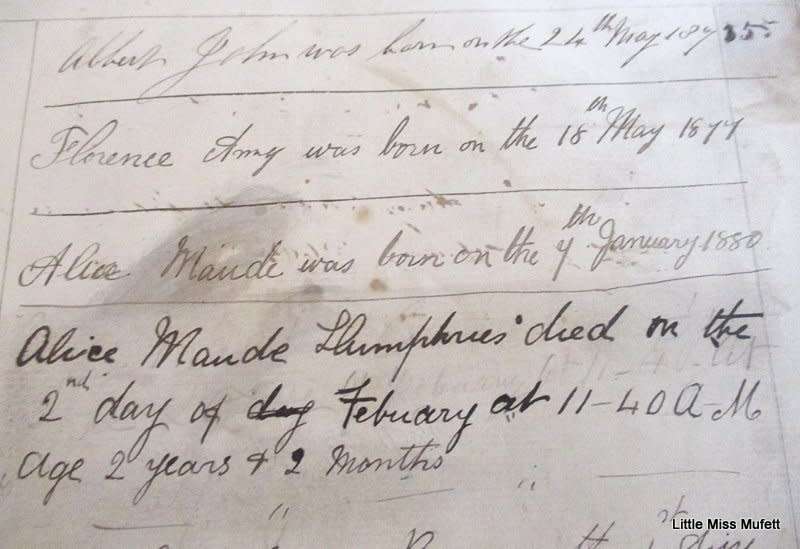 Albert John was born on the 24th May 1875
Florence Amy was born on the 18th May 1877
Alice Maude was born on the 7th January 1880
Alice Maude Humphries died on the
2nd day of day Febuary at 11-40 A-M
Age 2 years & 2 Months
" "
Little Miss Mufett